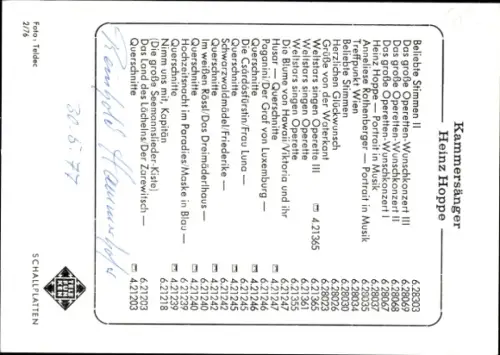 Kammersänger
Heinz Hoppe
Beliebte Stimmen II 6.28303
Das große Operetten-Wunschkonzert III 6.28069
Das große Operetten-Wunschkonzert II 6.28068
Das große Operetten-Wunschkonzert I 6.28067
Heinz Hoppe — Portrait in Musik 6.28037
Anneliese Rothenberger — Portrait in Musik 6.28035
Treffpunkt Wien 6.28034
Beliebte Stimmen 6.28030
Herzlichen Glückwunsch 6.28026
Grüße von der Waterkant 6.28023
Weltstars singen Operette III 4.21365 6.21365
Weltstars singen Operette 6.21361
Weltstars singen Operette 6.21355
Die Blume von Hawaii/Viktoria und ihr 6.21247
Husar — Querschnitte 4.21247
Paganini/Der Graf von Luxemburg — 6.21246
Querschnitte 4.21246
Die Csárdásfürstin/Frau Luna — 6.21245
Querschnitte 4.21245
Schwarzwaldmädel/Friederike — 6.21242
Querschnitte 4.21242
Im weißen Rössl/Das Dreimäderlhaus — 6.21240
Querschnitte 4.21240
Hochzeitsnacht im Paradies/Maske in Blau — 6.21239
Querschnitte 4.21239
Nimm uns mit, Kapitän 6.21218
(Die große Seemannslieder-Kiste)
Das Land des Lächelns/Der Zarewitsch — 6.21203
Querschnitte 4.21203
30.5.77
Foto: Teldec
2/76
SCHALLPLATTEN